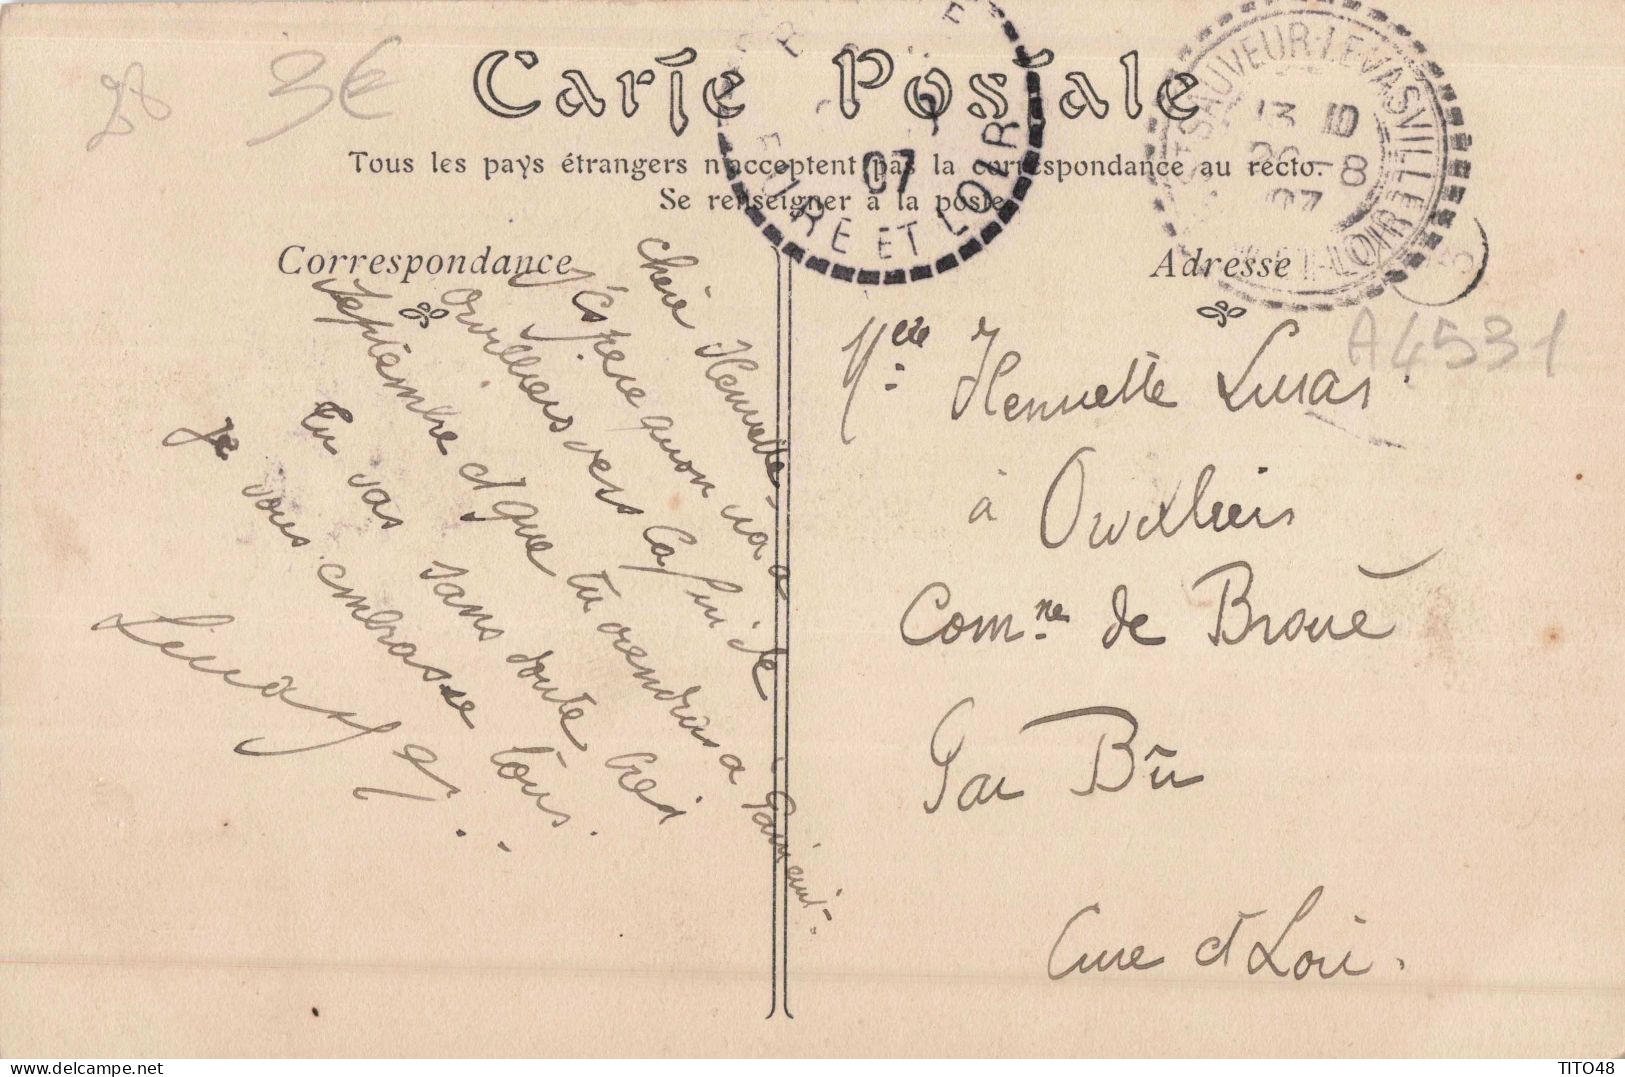 28
3€
Carte Postale
Tous les pays étrangers n'acceptent pas la correspondance au recto.
Se renseigner à la poste
EURE ET LOIR
07
ST SAUVEUR-LEVASVILLE
13 10
20-8
07
Correspondance
Adresse
A4531
Chère Henriette
J'espère qu'on va à
Orvilliers vers la fin de
Septembre et que tu viendras à
Tu vas sans doute bien
Je vous embrasse tous.
Mlle Henriette Lucas
à Orvilliers
Comne de Broué
Par Bû
Eure et Loir.
TITO48